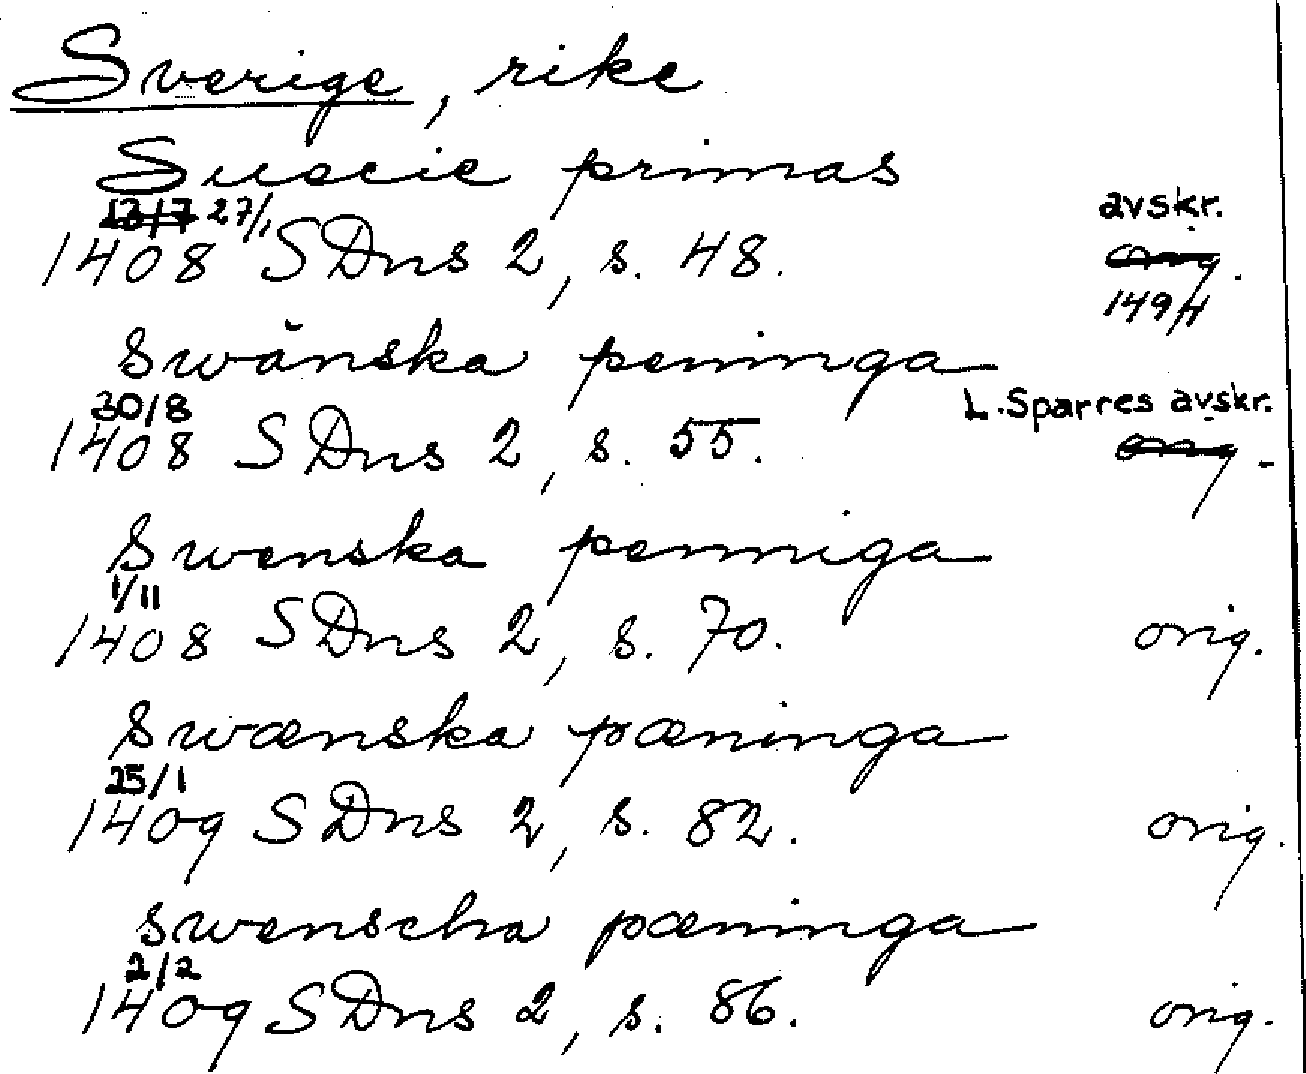 Sverige, rike
Suecie primas
13/7 27/1 avskr.
1408 SDns 2, s. 48. orig.
1494
swänska peninga
30/8 L. Sparres avskr.
1408 SDns 2, s. 55. orig.
Swenska penniga
1/11
1408 SDns 2, s. 70. orig.
swænska pæninga
25/1
1409 SDns 2, s. 82. orig.
swenscha pæninga
2/2
1409 SDns 2, s. 86. orig.